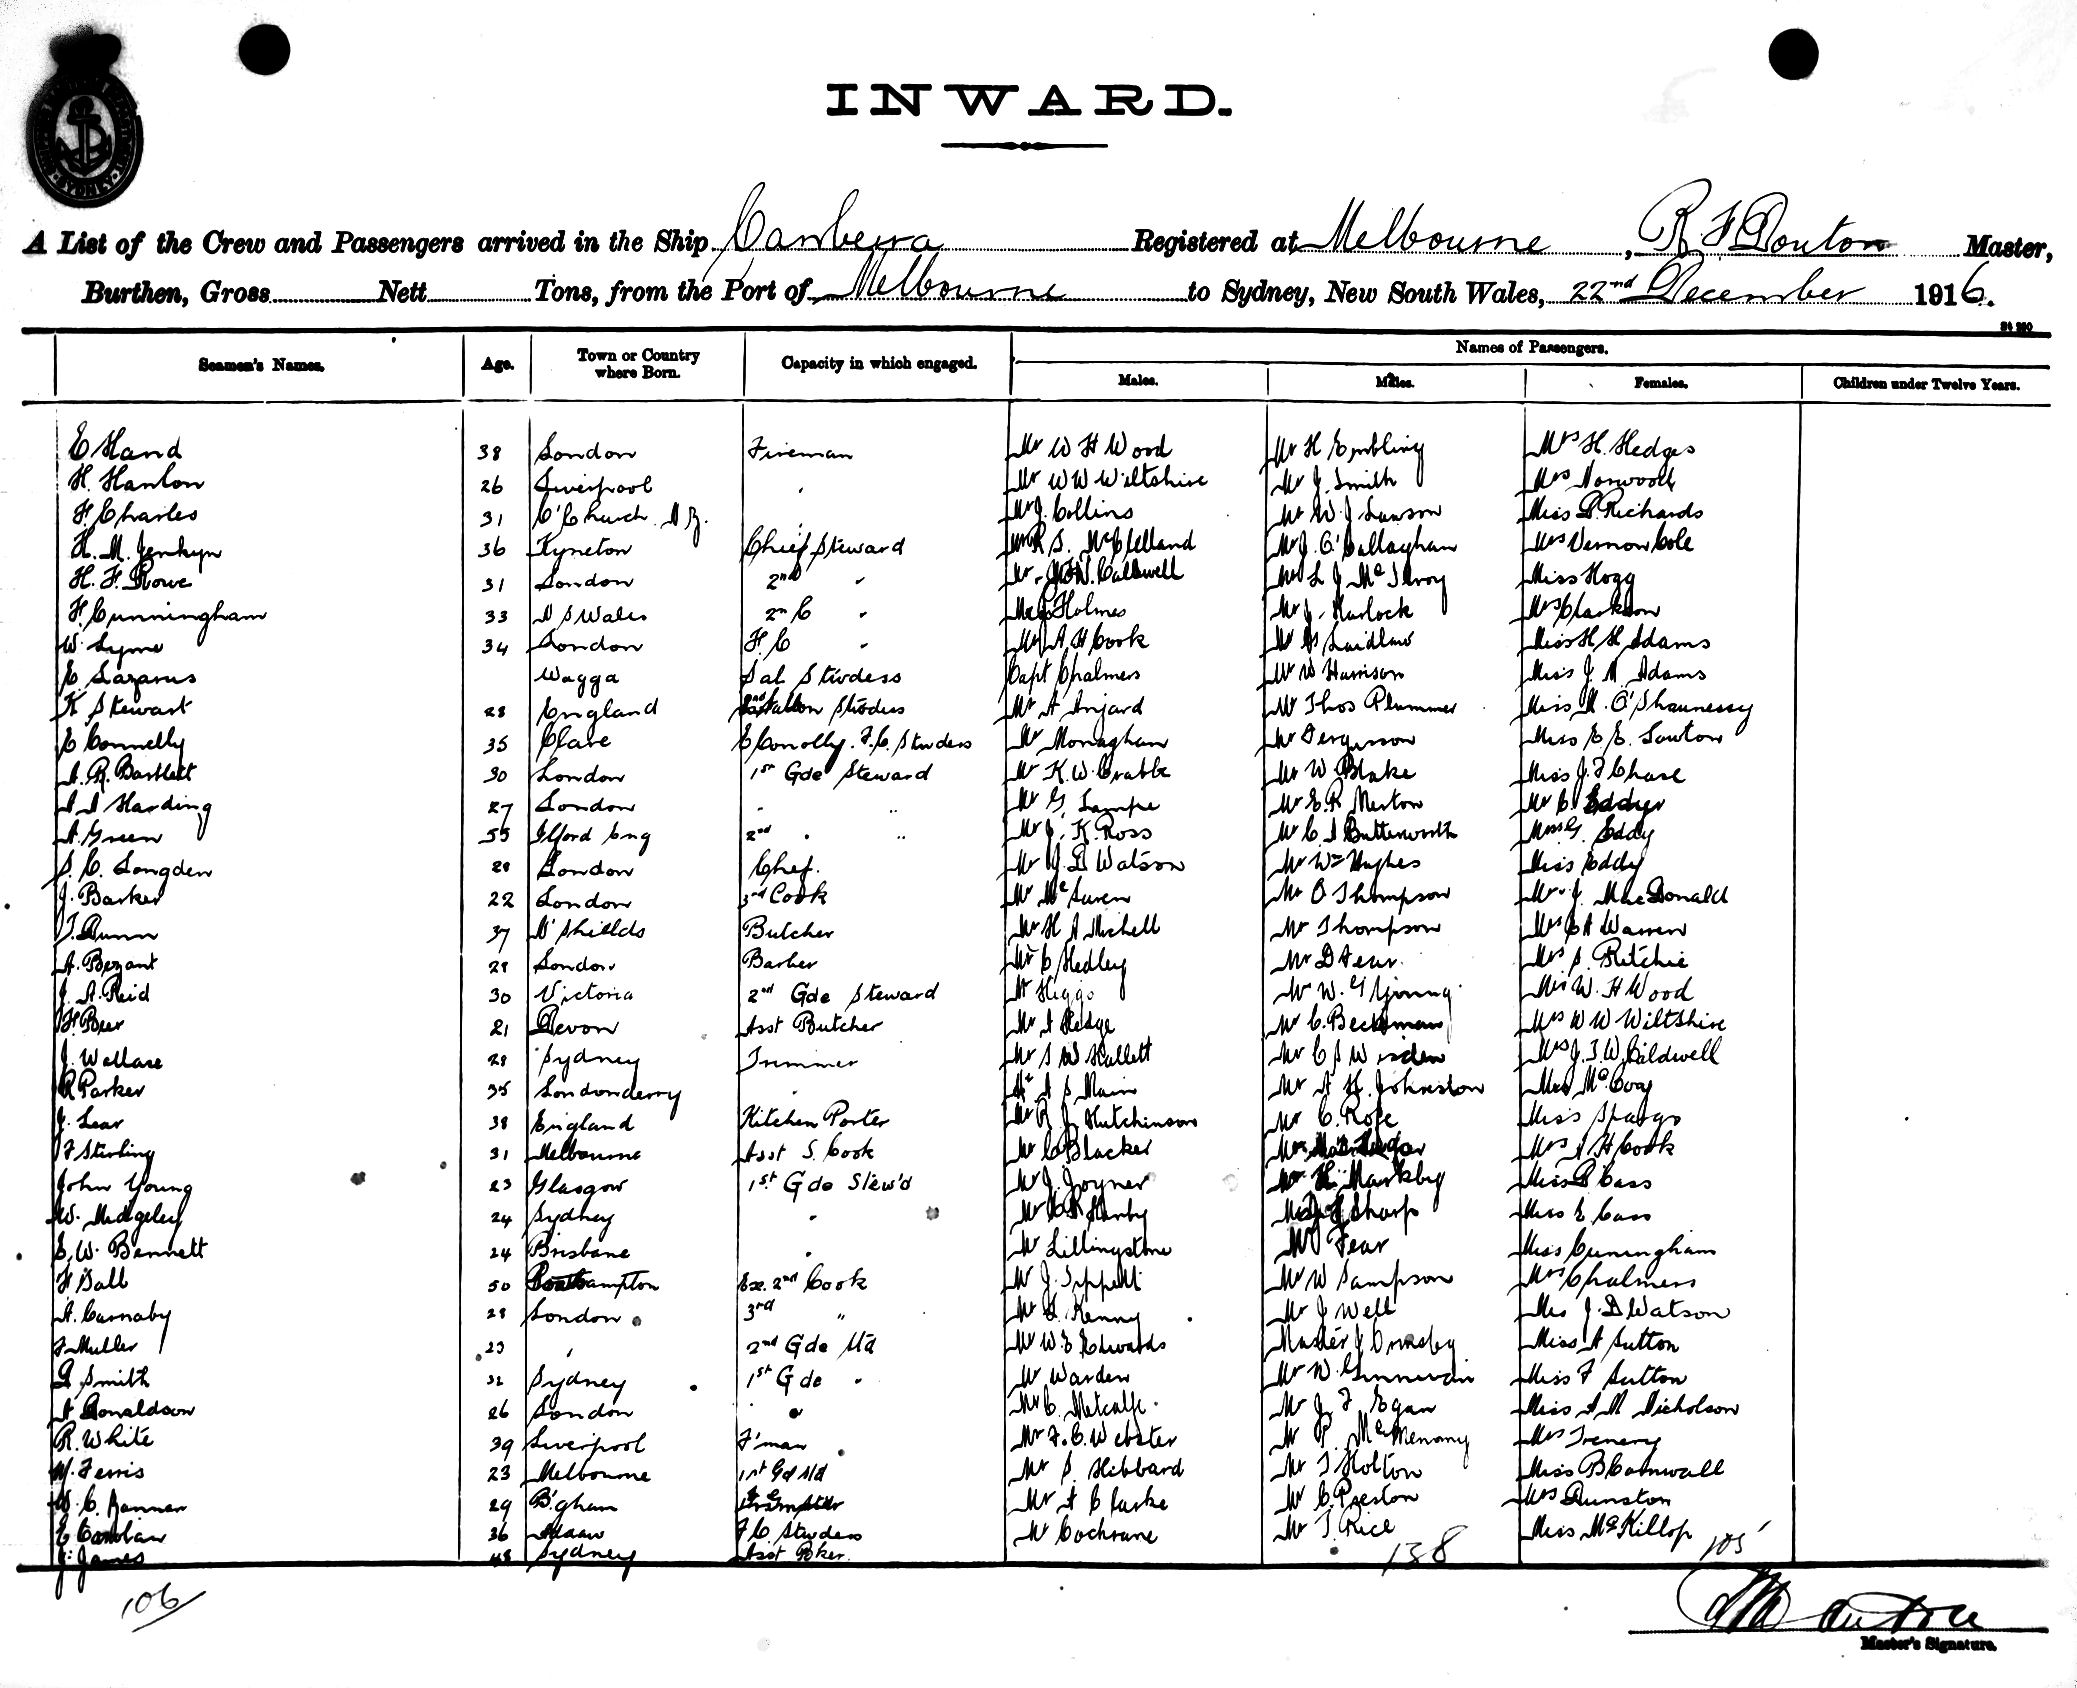 INWARD.
A List of the Crew and Passengers arrived in the Ship Canberra Registered at Melbourne, R F Douton Master,
Burthen, Gross Nett Tons, from the Port of Melbourne to Sydney, New South Wales, 22nd December 1916.
Seamen's Names. Age. Town or Country where Born. Capacity in which engaged. Names of Passengers.
Males. Males. Females. Children under Twelve Years.
E Hand 38 London Fireman Mr W H Wood Mr H Embling Mrs H. Hedges
H. Hanlon 26 Liverpool Mr W W Wiltshire Mr J. Smith Mrs Norwood
F. Charles 31 C'Church N Z. Mr J. Collins Mr W. J Lawson Miss D. Richards
H. M. Jenkyn 36 Kyneton Chief Steward S. McClelland Mr J. O'Callaghan Mrs Vernon Cole
H. F. Rowe 31 London 2nd " Mr W. Caldwell L J McIlroy Miss Hogg
F. Cunningham 33 N S Wales 2n C " Holmes Mr J. Harlock Mrs Clarkson
W. Syme 34 London F. C " Mr A H Cook Mr Laidlaw Miss H. H. Adams
E. Lazarus Wagga Sal Stwdess Capt Chalmers Mr W Harrison Miss J. M Adams
K Stewart 28 England Stwdess Mr A Anjard Mr Thos Plummer Miss M. O'Shaunessy
E Connelly 35 Clare E Conolly. F. C. Stwdess Mr Monaghan Mr Fergusson Miss E E. Lawton
A. R. Bartlett 30 London 1st Gde Steward Mr K. W. Crabbe Mr W Blake Miss J. F Chase
Harding 27 London " " Mr G. Lampe Mr E. R Merton
A. Green 55 Ilford Eng 2nd " " Mr J. K. Ross Mr C. S Butterworth G. Eddy
S. C. Longden 28 London Chef. Mr J. D Watson Mr Wm Hughes Miss Eddy
J. Barker 22 London 3rd Cook Mr McLaren Mr O Thompson J. MacDonald
T. Dunn 37 N' Shields Butcher Mr H A Michell Mr Thompson Mrs C A Warren
A. Bezant 28 London Barber Mr C Hedley Mr D Fear. Mrs S. Ritchie
J. A. Reid 30 Victoria 2nd Gde Steward Higgs Mr W. G Young Mrs W. H Wood
F. Beer 21 Devon Asst Butcher Mr A Hedge Mr C. Beckman Mrs W W Wiltshire
J. Wallace 28 Sydney Trimmer Mr S W Hallett Mr C S W Mrs J. T. W. Caldwell
R Parker 35 Londonderry " A S Main Mr A H. Johnston McCoy
J. Lear 38 England Kitchen Porter Mr R J. Hutchinson Mr C. Rose Miss Spargo
F Stirling 31 Melbourne Asst S. Cook Mr C Blacker Mrs A H Cook
John Young 23 Glasgow 1st Gde Stew'd Mr J. Joyner H. Markby Miss D Cass
W. Midgeley 24 Sydney " Mr Hanby Sharp Miss E Cass
E. W. Bennett 24 Brisbane " Mr Lillingstone Fear Miss Cuningham
F. Ball 50 Ex. 2nd Cook Mr J. Tippett Mr W Sampson Mrs Chalmers
A. Carnaby 28 London 3rd " Mr L. Kenny Mr J Well J. D Watson
F Muller 23 " 2nd Gde Mr W. E Edwards Master J Ormsby Miss A Sutton
D Smith 32 Sydney 1st Gde " Mr Warden Mr W. Miss F Sutton
A Donaldson 26 London " Mr C. Metcalfe Mr J. F Egan Miss A M Nicholson
R. White 39 Liverpool F'man Mr F. C. Webster P. McMenamy Mrs Trenery
W. Ferris 23 Melbourne 1st Gd Mr S. Hibbard Mr T Holton Miss B Cornwall
W. C. 29 B'gham Mr A Clarke Mr C. Preston Mrs Dunston
36 F C Stwdess Mr Cochrane Mr T. Rice Miss McKillop
J. James 48 Sydney Asst Bker.
138 105
106
Master's Signature.